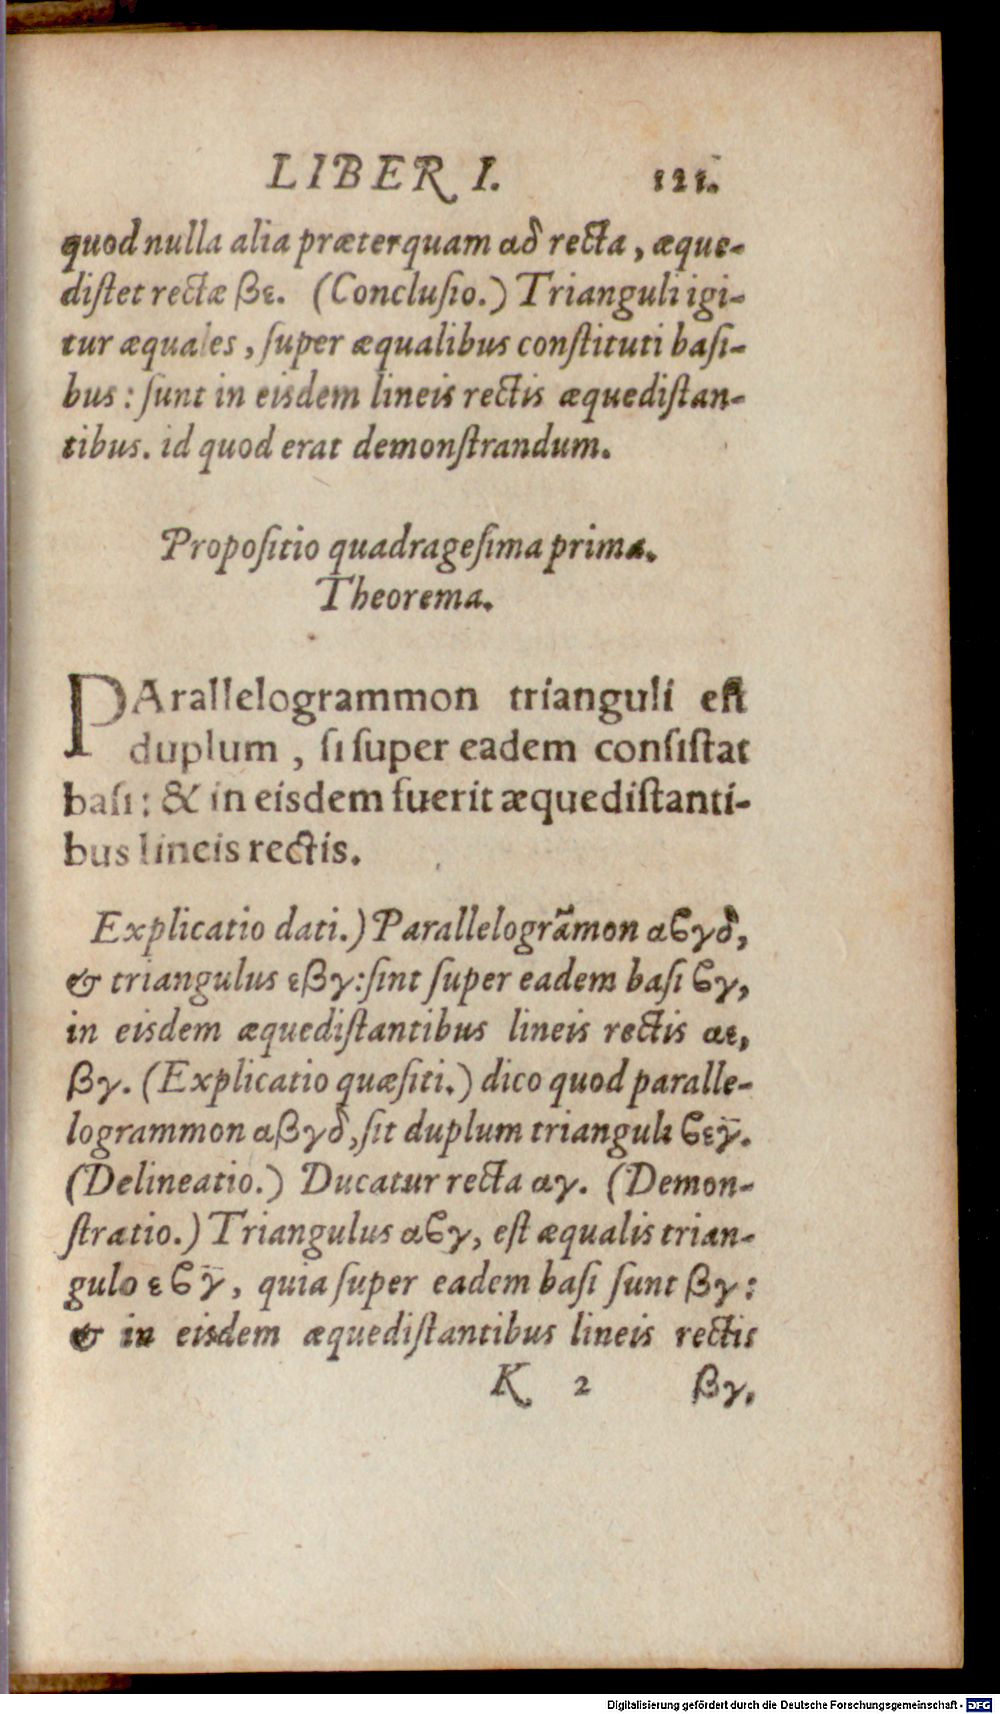 LIBER I. 121.
quod nulla alia præterquam αδ recta, æque-
diſtet rectæ βε. (Concluſio.) Trianguli igi-
tur æquales, ſuper æqualibus conſtituti baſi-
bus: ſunt in eisdem lineis rectis æquediſtan-
tibus. id quod erat demonſtrandum.
Propoſitio quadrageſima prima.
Theorema.
PArallelogrammon trianguli eſt
duplum, ſi ſuper eadem conſiſtat
baſi: & in eisdem fuerit æquediſtanti-
bus lineis rectis.
Explicatio dati.) Parallelogrãmon αϐγδ,
& triangulus εβγ: ſint ſuper eadem baſi ϐγ,
in eisdem æquediſtantibus lineis rectis αε,
βγ. (Explicatio quæſiti.) dico quod paralle-
logrammon αβγδ, ſit duplum trianguli ϐεγ.
(Delineatio.) Ducatur recta αγ. (Demon-
ſtratio.) Triangulus αϐγ, eſt æqualis trian-
gulo εϐγ, quia ſuper eadem baſi ſunt βγ:
& in eisdem æquediſtantibus lineis rectis
K 2 βγ,
Digitalisierung gefördert durch die Deutsche Forschungsgemeinschaft - DFG